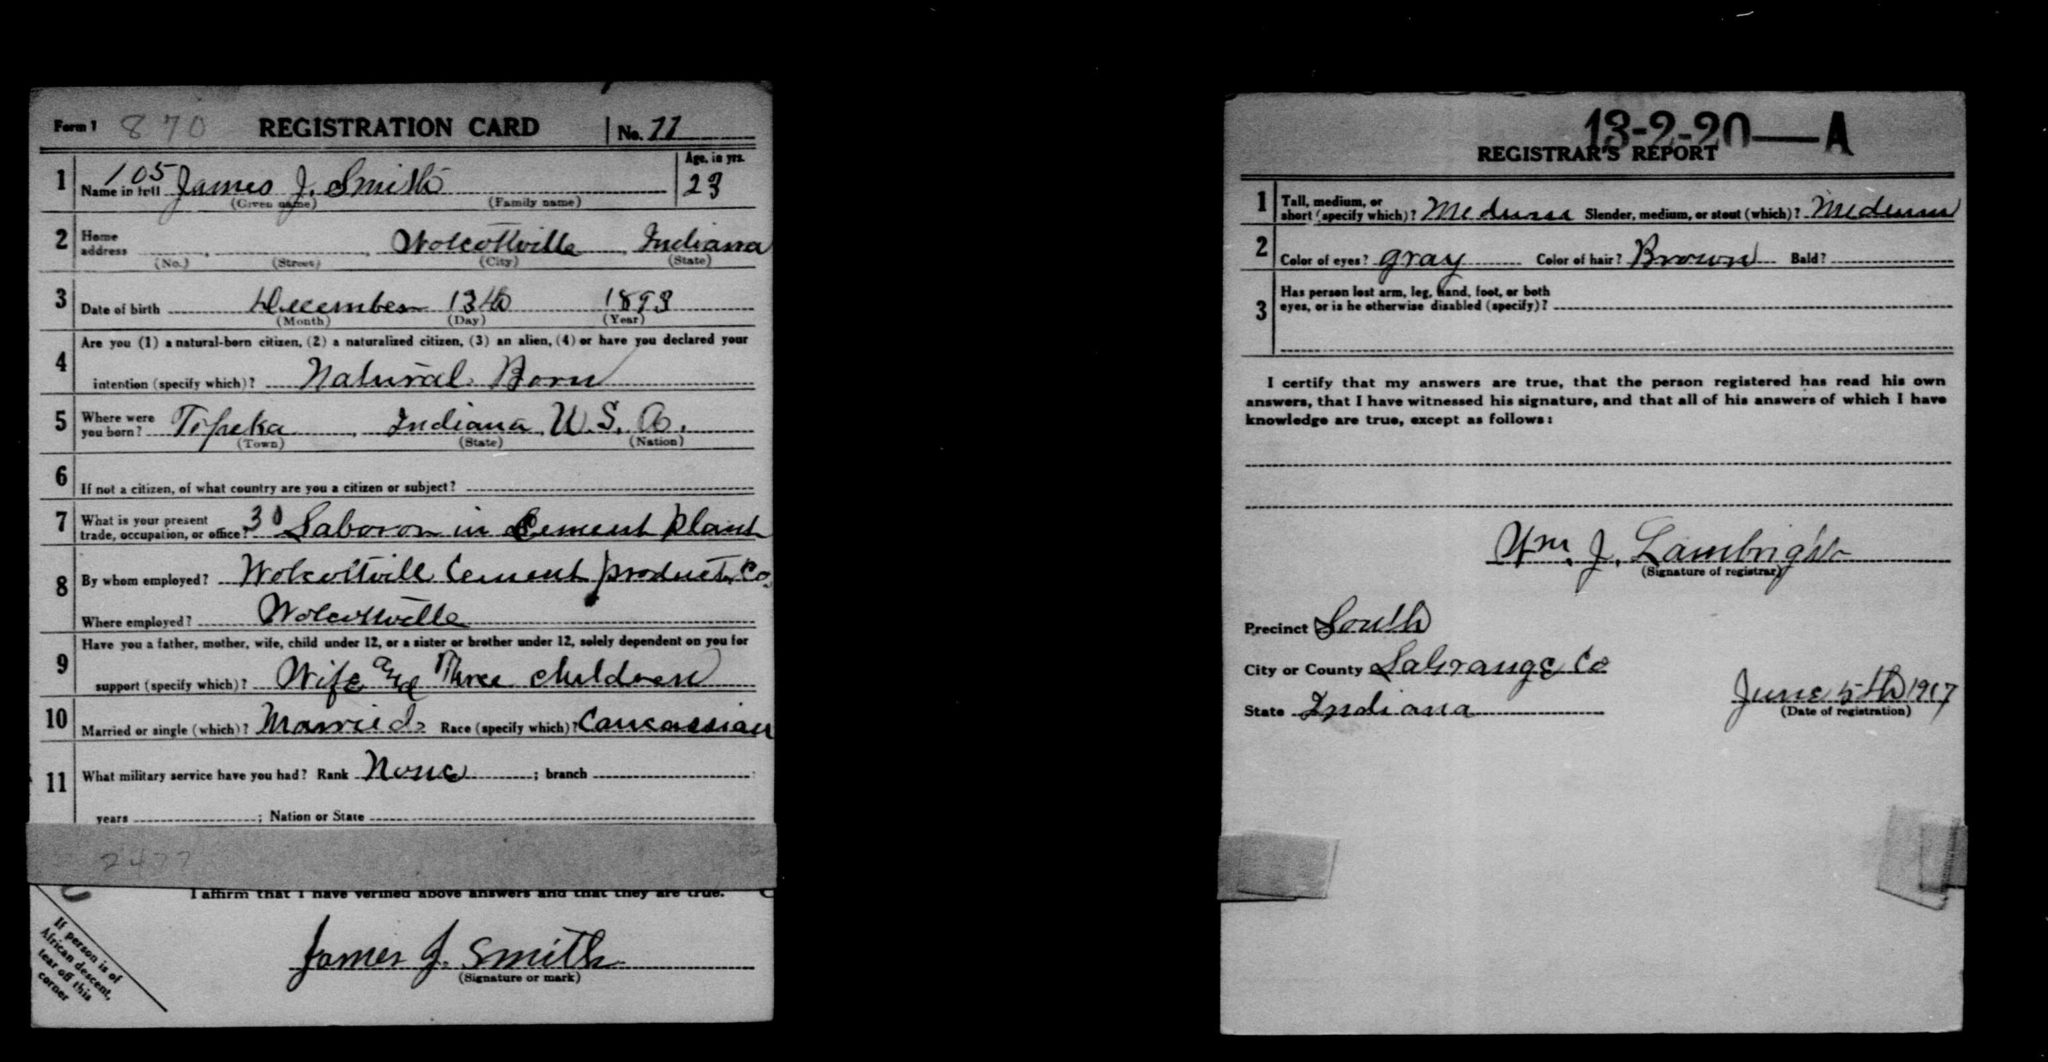 Form 1 870 REGISTRATION CARD No. 11
1 Name in full 105 James J. Smith Age, in yrs. 23
(Given name) (Family name)
2 Home address Wolcottville Indiana
(No.) (Street) (City) (State)
3 Date of birth December 13th 1893
(Month) (Day) (Year)
4 Are you (1) a natural-born citizen, (2) a naturalized citizen, (3) an alien, (4) or have you declared your
intention (specify which)? Natural Born
5 Where were you born? Topeka, Indiana U.S.A.
(Town) (State) (Nation)
6 If not a citizen, of what country are you a citizen or subject?
7 What is your present
trade, occupation, or office? 30 Laboror in Cement plant
8 By whom employed? Wolcottvill Cement products Co.
Where employed? Wolcottville
9 Have you a father, mother, wife, child under 12, or a sister or brother under 12, solely dependent on you for
support (specify which)? Wife and Three children
10 Married or single (which)? Married Race (specify which)? Caucassian
11 What military service have you had? Rank None ; branch
years ; Nation or State
2477
I affirm that I have verified above answers and that they are true.
If person is of
African descent,
tear off this
corner
James J. Smith
(Signature or mark)
13-2-20-A
REGISTRAR'S REPORT
1 Tall, medium, or
short (specify which)? Medium Slender, medium, or stout (which)? Medium
2 Color of eyes? gray Color of hair? Brown Bald?
3 Has person lost arm, leg, hand, foot, or both
eyes, or is he otherwise disabled (specify)?
I certify that my answers are true, that the person registered has read his own
answers, that I have witnessed his signature, and that all of his answers of which I have
knowledge are true, except as follows:
Wm. J. Lambright
(Signature of registrar)
Precinct South
City or County LaGrange Co
State Indiana
June 5th 1917
(Date of registration)